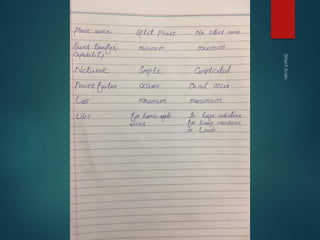 Phase name Split phase No other name
Power transfer capability minimum maximum
Network Simple Complicated
Power failure occurs Do not occur
Loss maximum minimum
Uses For home appli In large industries
ances for heavy machines
or loads.
Sharif Anan